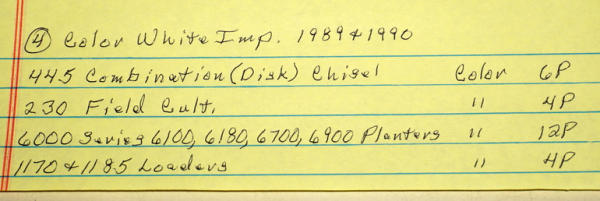 ④ Color White Imp. 1989 & 1990
445 Combination (Disk) Chisel Color 6P
230 Field Cult. " 4P
6000 Series 6100, 6180, 6700, 6900 Planters " 12P
1170 & 1185 Loaders " 4P